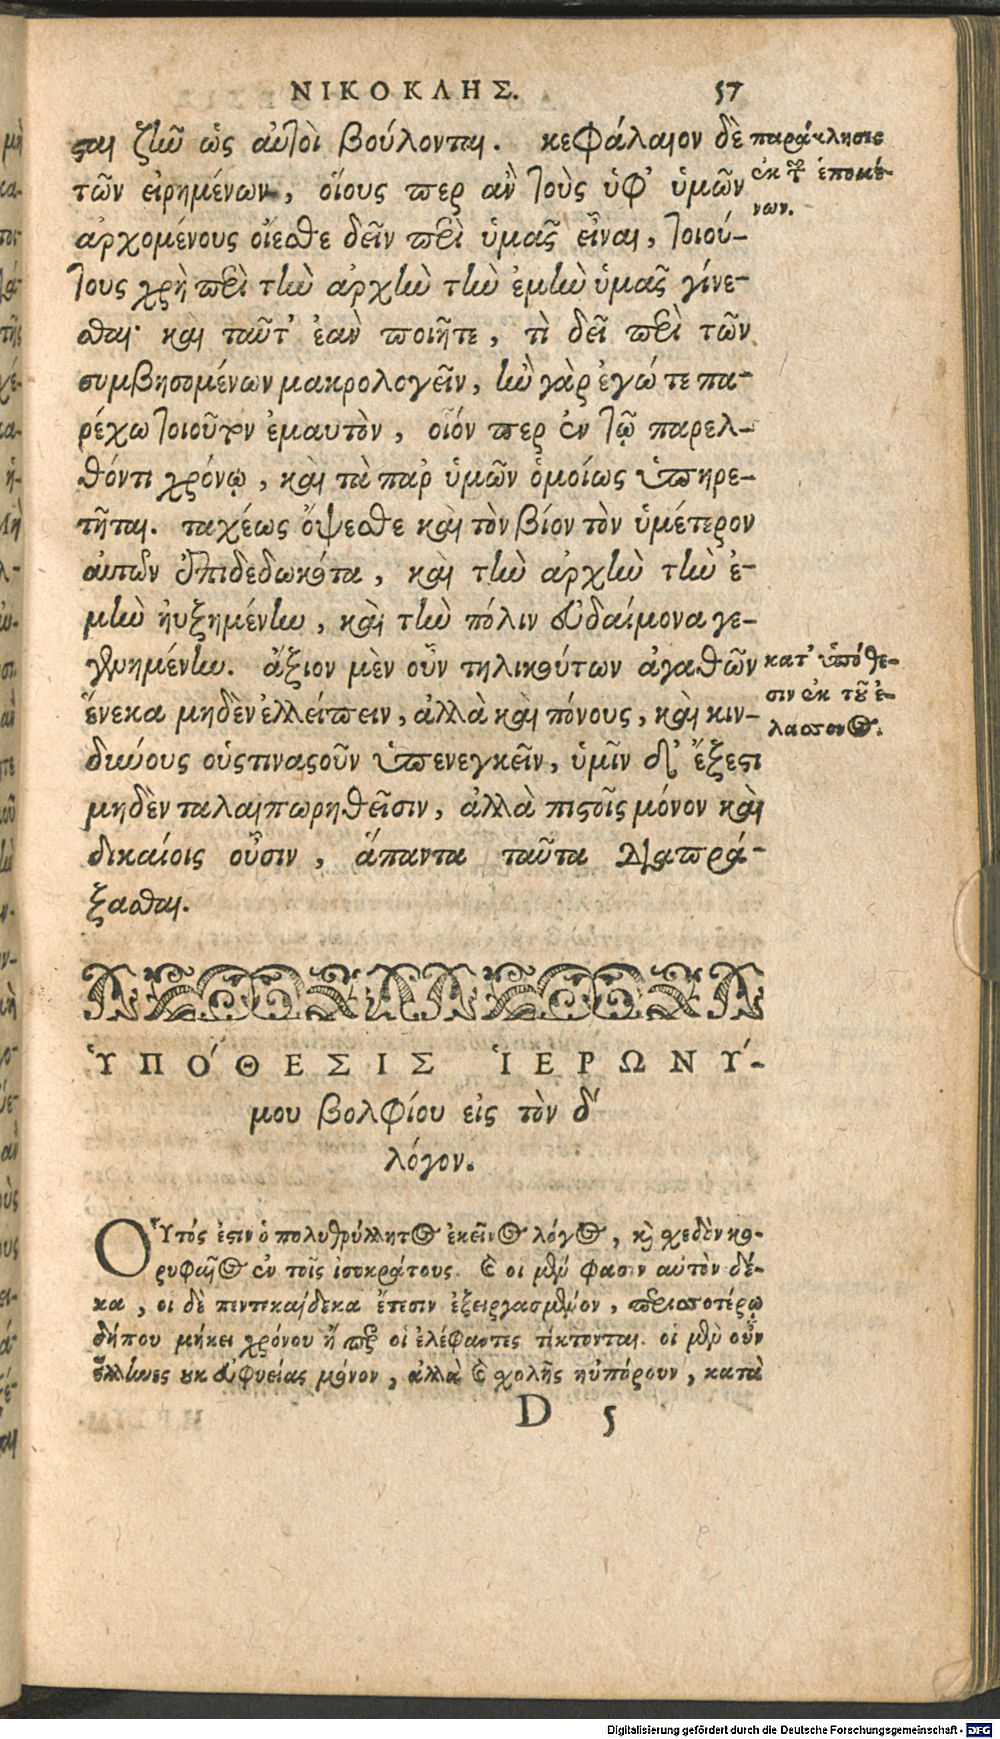 ΝΙΚΟΚΛΗΣ. 57
σται ζῆν ὡς αὐτοὶ βούλονται. κεφάλαιον δὲ
τῶν εἰρημένων, οἵους περ ἂν τοὺς ὑφ' ὑμῶν
ἀρχομένους οἴεσθε δεῖν περὶ ὑμᾶς εἶναι, τοιού-
τους χρὴ περὶ τὴν ἀρχὴν τὴν ἐμὴν ὑμᾶς γίνε-
σθαι· καὶ ταῦτ' ἐὰν ποιῆτε, τὶ δεῖ περὶ τῶν
συμβησομένων μακρολογεῖν, ἢν γὰρ ἐγώ τε πα-
ρέχω τοιοῦτον ἐμαυτὸν, οἷόν περ ἐν τῷ παρελ-
θόντι χρόνῳ, καὶ τὰ παρ' ὑμῶν ὁμοίως ὑπηρε-
τῆται. ταχέως ὄψεσθε καὶ τὸν βίον τὸν ὑμέτερον
αὐτῶν ἐπιδεδωκότα, καὶ τὴν ἀρχὴν τὴν ἐ-
μὴν ηὐξημένην, καὶ τὴν πόλιν εὐδαίμονα γε-
γενημένην. ἄξιον μὲν οὖν τηλικούτων ἀγαθῶν
ἕνεκα μηδὲν ἐλλείπειν, ἀλλὰ καὶ πόνους, καὶ κιν-
δύνους οὑστινασοῦν ὑπενεγκεῖν, ὑμῖν δ' ἔξεστι
μηδὲν ταλαιπωρηθεῖσιν, ἀλλὰ πιστοῖς μόνον καὶ
δικαίοις οὖσιν, ἅπαντα ταῦτα διαπρά-
ξασθαι.
παράκλησις
ἐκ τῶν ἑπομέ-
νων.
κατ' ὑπόθε-
σιν ἐκ τοῦ ἐ-
λάσσονος.
ὙΠΟ´ΘΕΣΙΣ ἹΕΡΩΝΥ´-
μου βολφίου εἰς τὸν δ'
λόγον.
Οὗτός ἐστιν ὁ πολυθρύλλητος ἐκεῖνος λόγος, καὶ σχεδὸν κο-
ρυφαῖος ἐν τοῖς ἰσοκράτους. ὃν οἱ μέν φασιν αὐτὸν δέ-
κα, οἱ δὲ πεντεκαίδεκα ἔτεσιν ἐξειργασμένον, περισσοτέρῳ
δήπου μήκει χρόνου ἤ περ οἱ ἐλέφαντες τίκτονται. οἱ μὲν οὖν
ἕλληνες οὐκ εὐφυείας μόνον, ἀλλὰ καὶ σχολῆς ηὐπόρουν, κατὰ
D 5
Digitalisierung gefördert durch die Deutsche Forschungsgemeinschaft - DFG